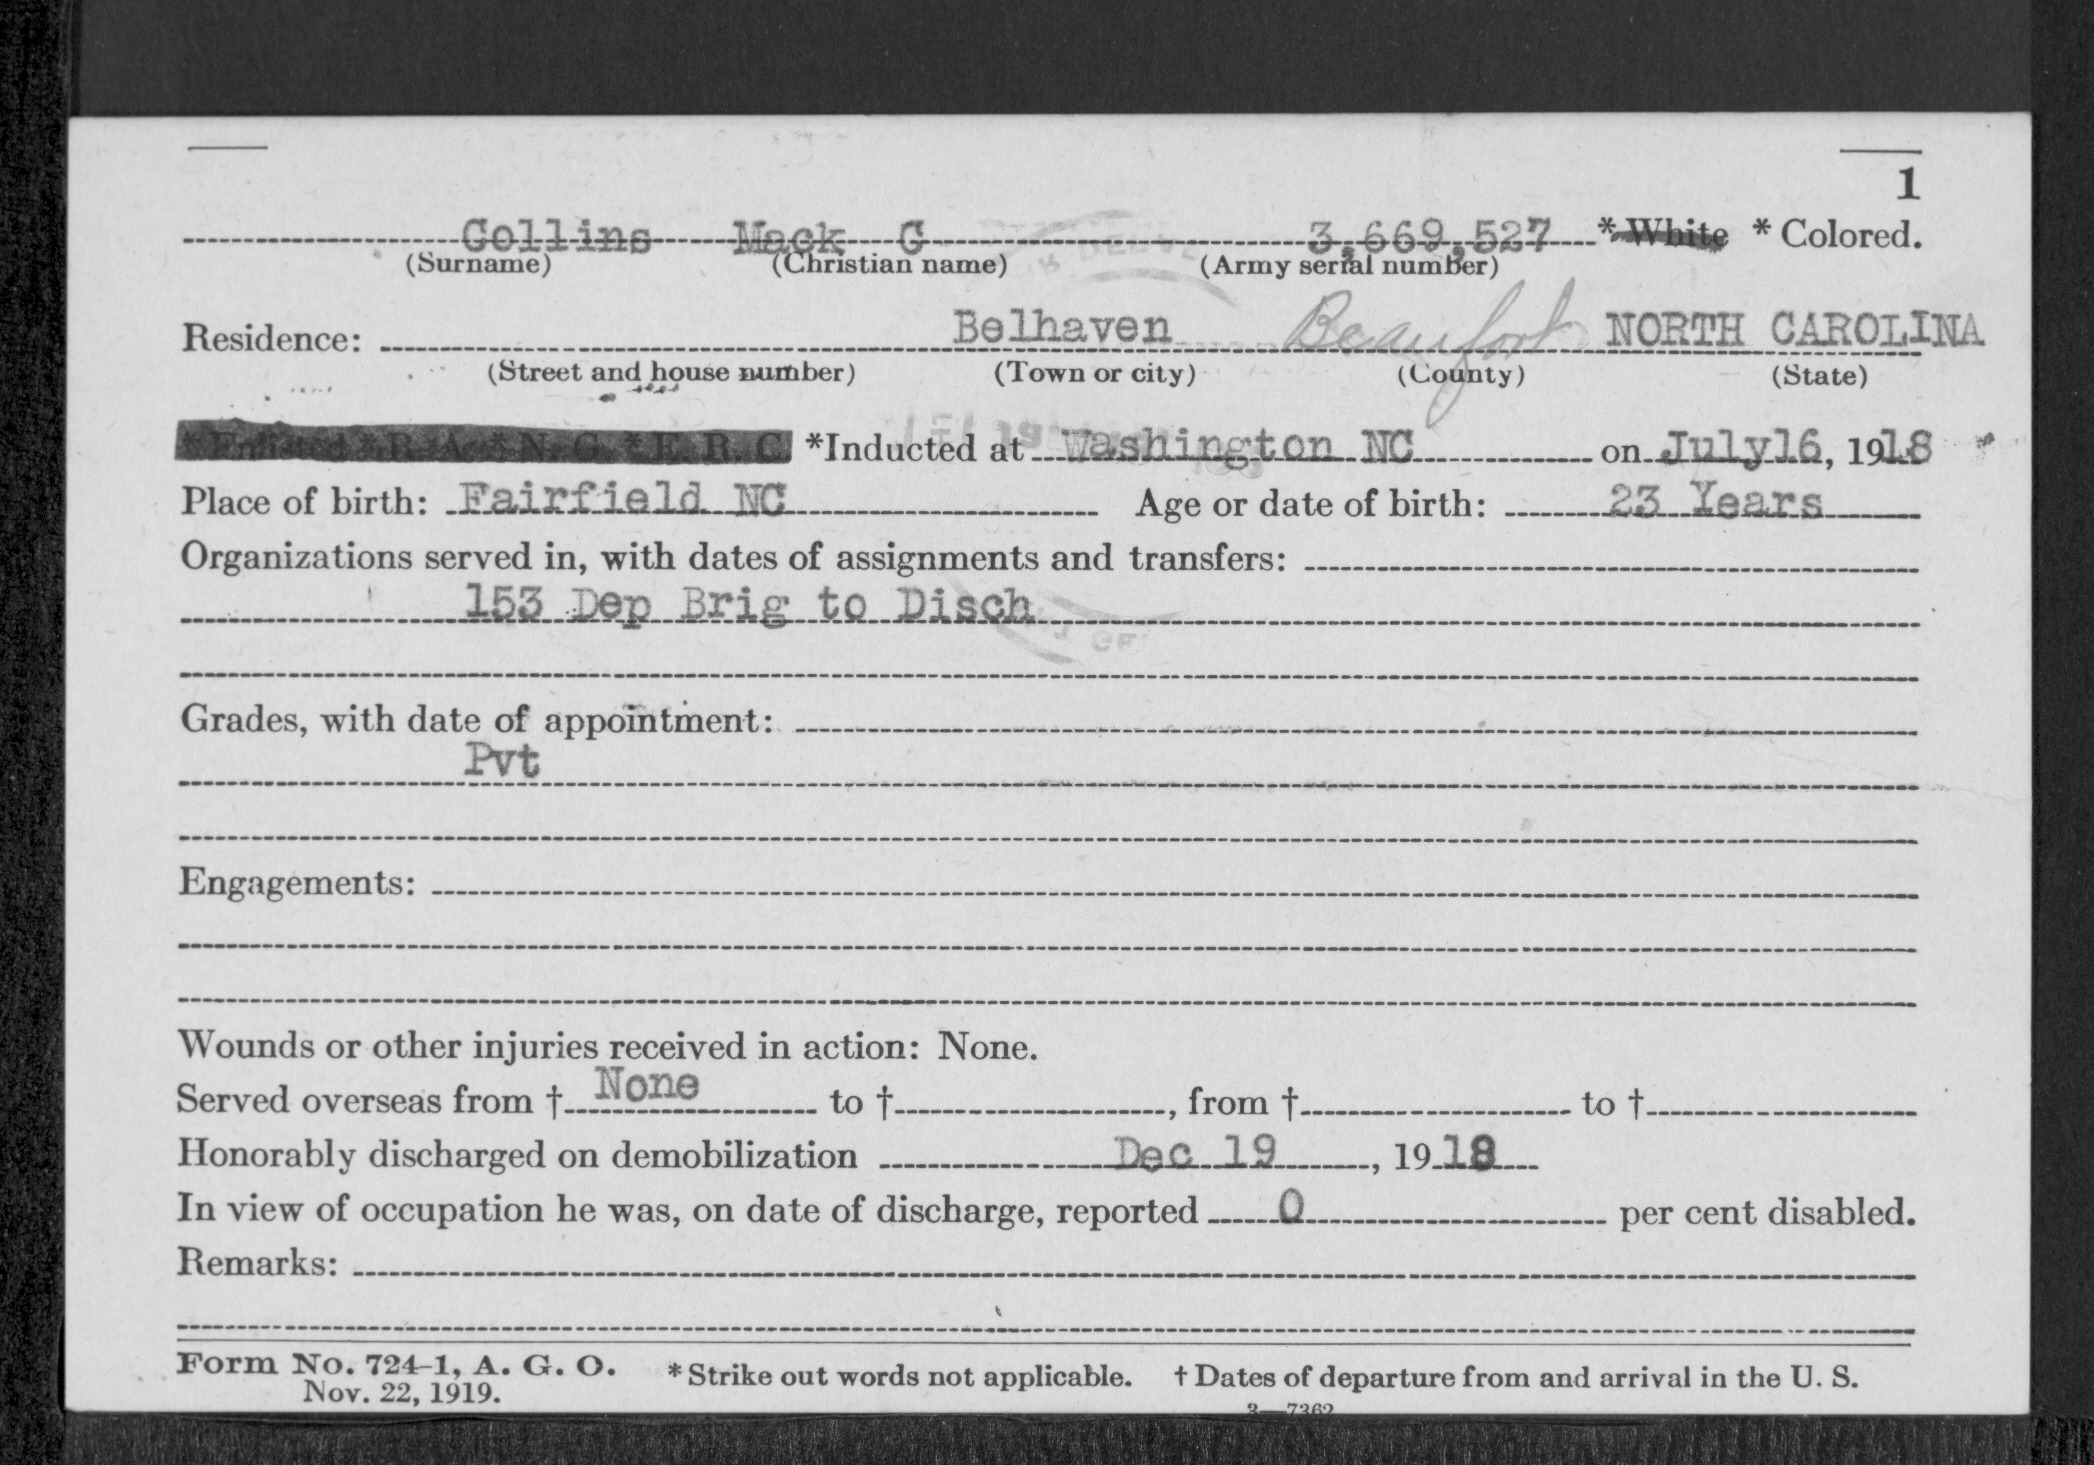 1
Collins Mack G 3,669,527 * White * Colored.
(Surname) (Christian name) (Army serial number)
Residence: Belhaven Beaufort NORTH CAROLINA
(Street and house number) (Town or city) (County) (State)
* Enlisted * R. A. * N. G. * E. R. C. *Inducted at Washington NC on July16, 1918
Place of birth: Fairfield NC Age or date of birth: 23 Years
Organizations served in, with dates of assignments and transfers:
153 Dep Brig to Disch
Grades, with date of appointment:
Pvt
Engagements:
Wounds or other injuries received in action: None.
Served overseas from † None to †, from † to †
Honorably discharged on demobilization Dec 19, 1918
In view of occupation he was, on date of discharge, reported 0 per cent disabled.
Remarks:
Form No. 724-1, A. G. O. * Strike out words not applicable. † Dates of departure from and arrival in the U. S.
Nov. 22, 1919.
3—7362